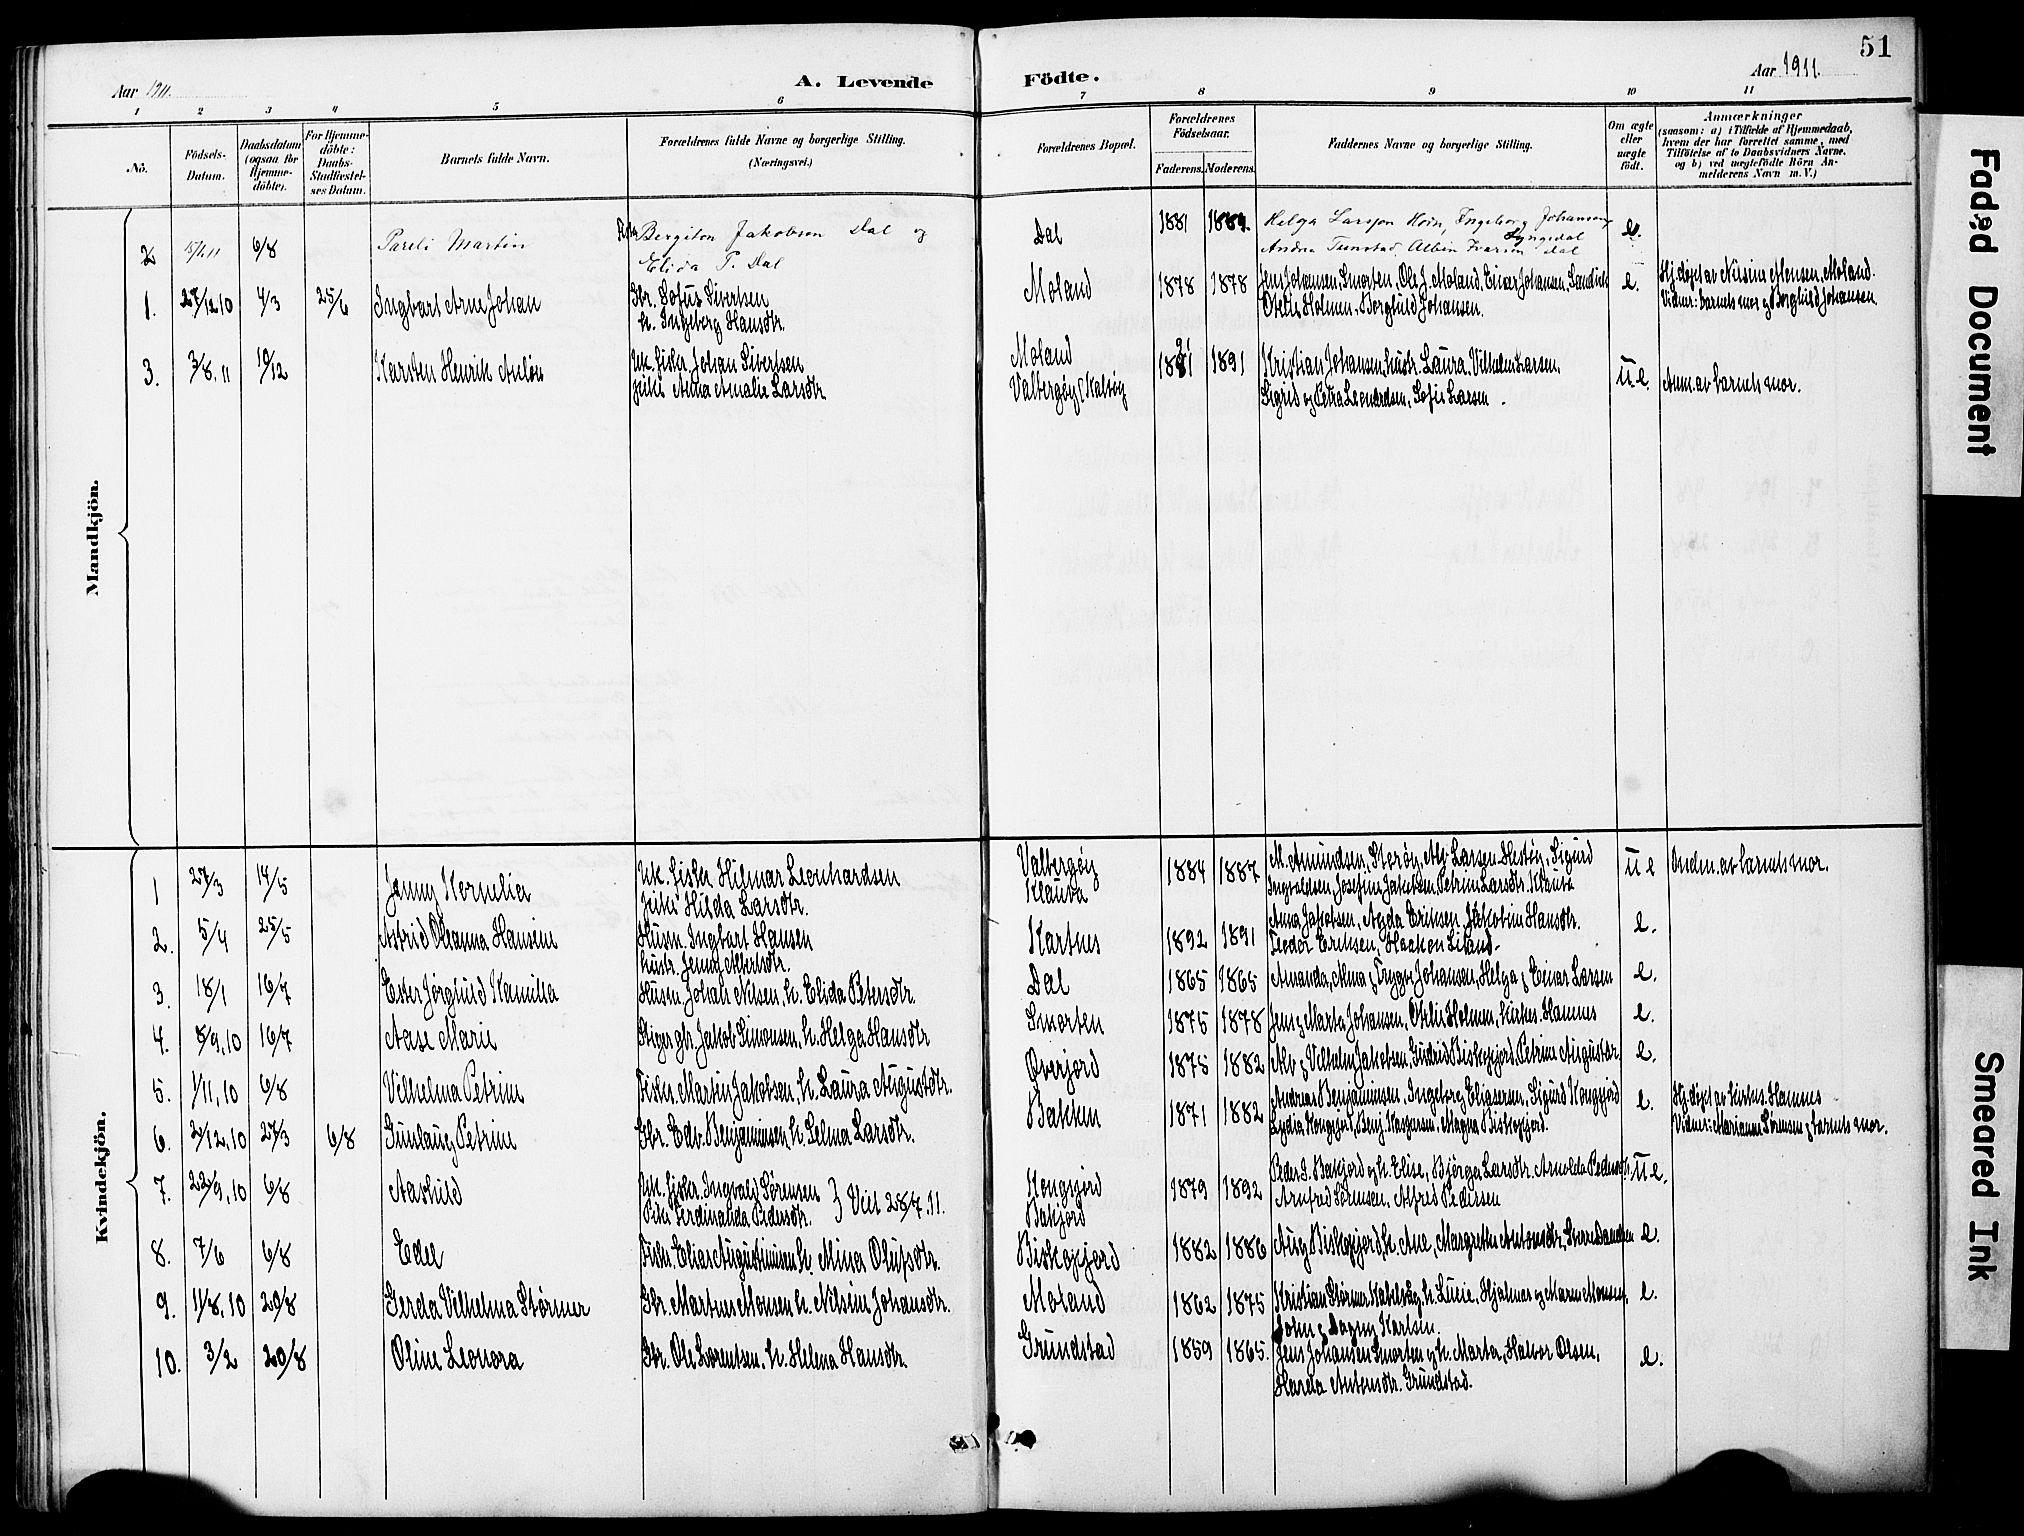 51
Aar 1911.
A. Levende Födte.
Aar 1911.
1 2 3 4 5 6 7 8 9 10 11
No.
Födsels-Datum.
Daabsdatum (ogsaa for Hjemme-döbte).
For Hjemme-döbte: Daabs-Stadfæstel-ses Datum.
Barnets fulde Navn.
Forældrenes fulde Navne og borgerlige Stilling. (Næringsvei.)
Forældrenes Bopæl.
Forældrenes Födselsaar.
Faderens. Moderens.
Faddernes Navne og borgerlige Stilling.
Om ægte eller uægte födt.
Anmærkninger
(saasom: a) i Tilfælde af Hjemmedaab,
hvem der har forrettet samme, med
Tilföielse af to Daabsvidners Navne,
og b) ved uægtefödte Börn An-
melderens Navn m. V.)
Mandkjön.
2 6/8 Pareli Martin Bergiton Jakobsen Dal og Dal 1881 Helga Larsson Ingeborg Johansen e.
Elida P. Dal Andrea Albin Dal
1. 27/12 10 4/3 25/6 Ingvart Arne Johan Gbr. Sofus Sivertsen Moland 1878 1878 Jens Johansen, Smorten, Ole J. Moland, Einar Johansen, e. Hj.døpt av Nilsine Monsen, Moland.
h. Ingeborg Hansdtr. Otelie Holmen, Borghild Johansen. Vidner: barnets mor og Borghild Johansen
3. 3/8.11 10/12 Karsten Henrik Anton Uk. fisker Johan Sivertsen Moland 1891 Kristian Johansen, hustr. Laura, Vilhelm Larsen, u.e. Anm. av barnets mor.
pike Anna Amalie Larsdtr. Valbergøy Sigrid og Petra Leonardsen, Sofie Larsen.
Kvindekjön.
1 27/3 14/5 Jenny Kornelia Uk. fisker Hilmar Leonhardsen Valbergøy 1884 1887 M. Amundsen, Larsen Sigurd u e Anm. av barnets mor.
Pike Hilda Larsdtr. Klauva Ingvaldsen, Josefine Jakobsen, Petrine Larsdtr. Klauva
2. 5/4 25/5 Astrid Oleanna Hansine Husm. Ingvart Hansen Kartnes 1892 1891 Anna Jakobsen, Agda Eriksen, Jakobine Hansdtr. e.
hustr. Jenny Albertsdtr. Teodor Eriksen, Haakon Liland.
3. 18/1 16/7 Ester Jørghild Kamilla Husm. Johan Nilsen, h. Elida Petersdtr. Dal 1865 1865 Amanda, Alma og Trygve Johansen, Helga og Einar Larsen e.
4. 8/9.10 16/7 Aase Marie gbr. Jakob Simonsen, h. Helga Hansdtr Smorten 1875 1878 Jens og Marta Johansen, Otelie Holmen, kirkes. Hamnes e.
5. 1/11, 10 6/8 Vilhelma Petrine Fisker Martin Jakobsen, h. Laura Augustdtr. Øverjord 1875 1882 Alv og Vilhelm Jakobsen, Gudrid Biskopjord, Petrine Augustdtr. e.
6. 2/12, 10 27/3 6/8 Gunlaug Petrine Gbr. Edv. Benjaminsen, h. Selma Larsdtr. Bakken 1871 1882 Andreas Benjaminsen, Ingeborg Eliasersen, Sigurd Kongjord e. Hj.døpt av kirkes. Hamnes
Lydia Kongjord, Benj. Kaspersen, Magna Biskopjord. Vidner: Marianne Sørensen og barnets mor.
7. 22/9, 10 6/8 Aashild Uk. fisker. Ingvald Sørensen } Viet 28/7. 11. Kongjord 1879 1892 Peder S. Bakjord og h. Elise, Bjørga Larsdtr. Arnolda Pedersdtr. u e.
Pike Ferdinanda Pedersdtr. Bakjord Arnfred Sørensen, Alfred Pedersen
8. 7/6 6/8 Edel Fisker Elias Augustinusen h. Mina Olufsdtr. Biskopjord 1882 1886 Aug. Biskopjord, h. Ane, Margrethe Antonsdtr, e.
9. 11/8, 10 20/8 Gerda Vilhelma Størmer Gbr. Martinus Monsen h. Nilsine Johansdtr. Moland 1862 1875 Kristian Størmer Kabelvåg, h. Lucie, Hjalmar og Maren Monsen, e.
John og Dagny Karlsen.
10. 3/2 20/8 Oline Leonora Gbr. Ole Lorentsen, h. Helena Hansdtr. Grundstad 1859 1865. Jens Johansen Smorten og h. Marta, Halvor Olsen, e.
Harda Antonsdtr. Grundstad.
Faded Document
Smeared Ink